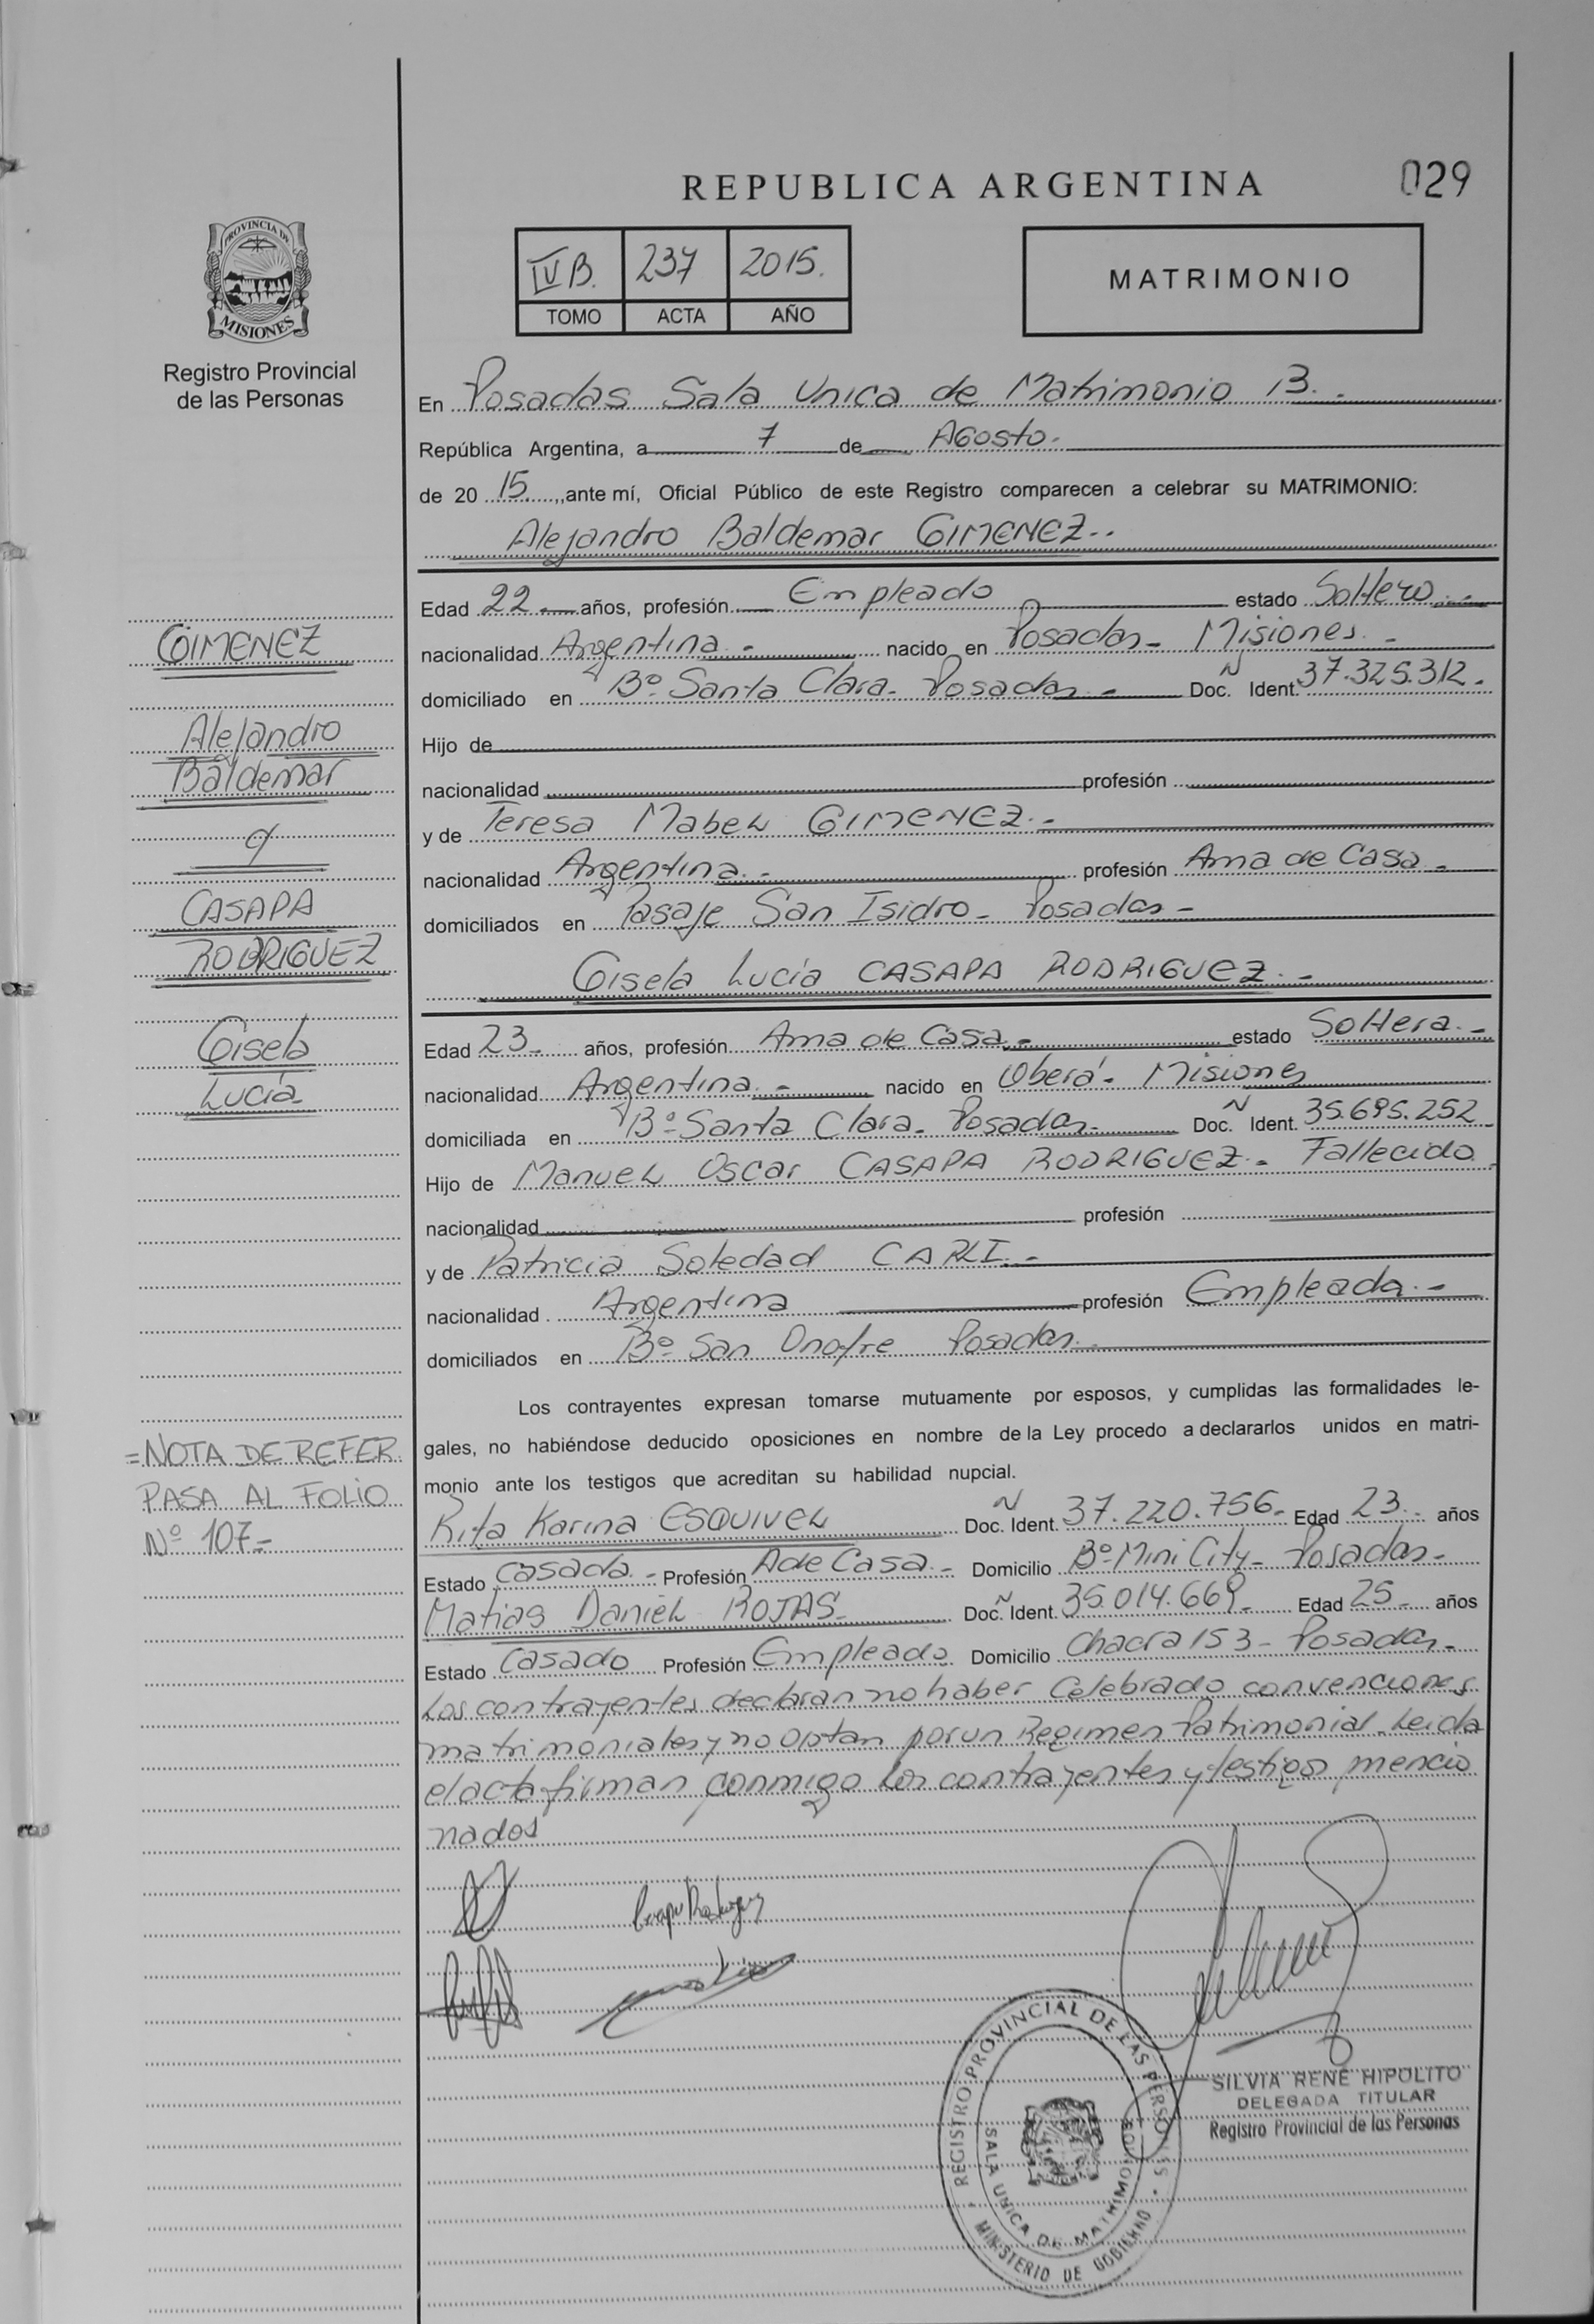 REPUBLICA ARGENTINA
029
PROVINCIA DE
MISIONES
Registro Provincial
de las Personas
IV B. 237 2015.
TOMO ACTA AÑO
MATRIMONIO
En Posadas Sala Unica de Matrimonio B.-
República Argentina, a 7 de Agosto.
de 20 15 ,ante mí, Oficial Público de este Registro comparecen a celebrar su MATRIMONIO:
Alejandro Baldemar GIMENEZ..
Edad 22 años, profesión Empleado estado Soltero.-
nacionalidad Argentina.- nacido en Posadas- Misiones.-
domiciliado en Bº Santa Clara- Posadas- Doc. Ident. 37.325.312.
Hijo de
nacionalidad profesión
y de Teresa Mabel GIMENEZ.-
nacionalidad Argentina.- profesión Ama de Casa-
domiciliados en Pasaje San Isidro- Posadas-
Gisela Lucía CASAPA RODRIGUEZ.-
Edad 23- años, profesión Ama de Casa.- estado Soltera.-
nacionalidad Argentina.- nacido en Oberá- Misiones
domiciliada en Bº Santa Clara- Posadas- Doc. Ident. 35.695.252
Hijo de Manuel Oscar CASAPA RODRIGUEZ- Fallecido
nacionalidad profesión
y de Patricia Soledad CARLI.-
nacionalidad Argentina profesión Empleada.-
domiciliados en Bº San Onofre Posadas.-
Los contrayentes expresan tomarse mutuamente por esposos, y cumplidas las formalidades le-
gales, no habiéndose deducido oposiciones en nombre de la Ley procedo a declararlos unidos en matri-
monio ante los testigos que acreditan su habilidad nupcial.
Rita Karina ESQUIVEL Doc. Ident. 37.220.756- Edad 23- años
Estado Casada- Profesión A de Casa.- Domicilio Bº Mini City- Posadas-
Matias Daniel ROJAS- Doc. Ident. 35.014.669- Edad 25- años
Estado Casado Profesión Empleado Domicilio Chacra 153- Posadas-
Los contrayentes declaran no haber Celebrado convenciones
matrimoniales y no optan por un Regimen Patrimonial. Leida
el acta firman conmigo los contrayentes y testigos mencio
nados
GIMENEZ
Alejandro
Baldemar
c/
CASAPA
RODRIGUEZ
Gisela
Lucía
=NOTA DE REFER.
PASA AL FOLIO
Nº 107-
REGISTRO PROVINCIAL DE LAS PERSONAS
SALA UNICA DE MATRIMONIO
MINISTERIO DE GOBIERNO
SILVIA RENÉ HIPOLITO
DELEGADA TITULAR
Registro Provincial de las Personas